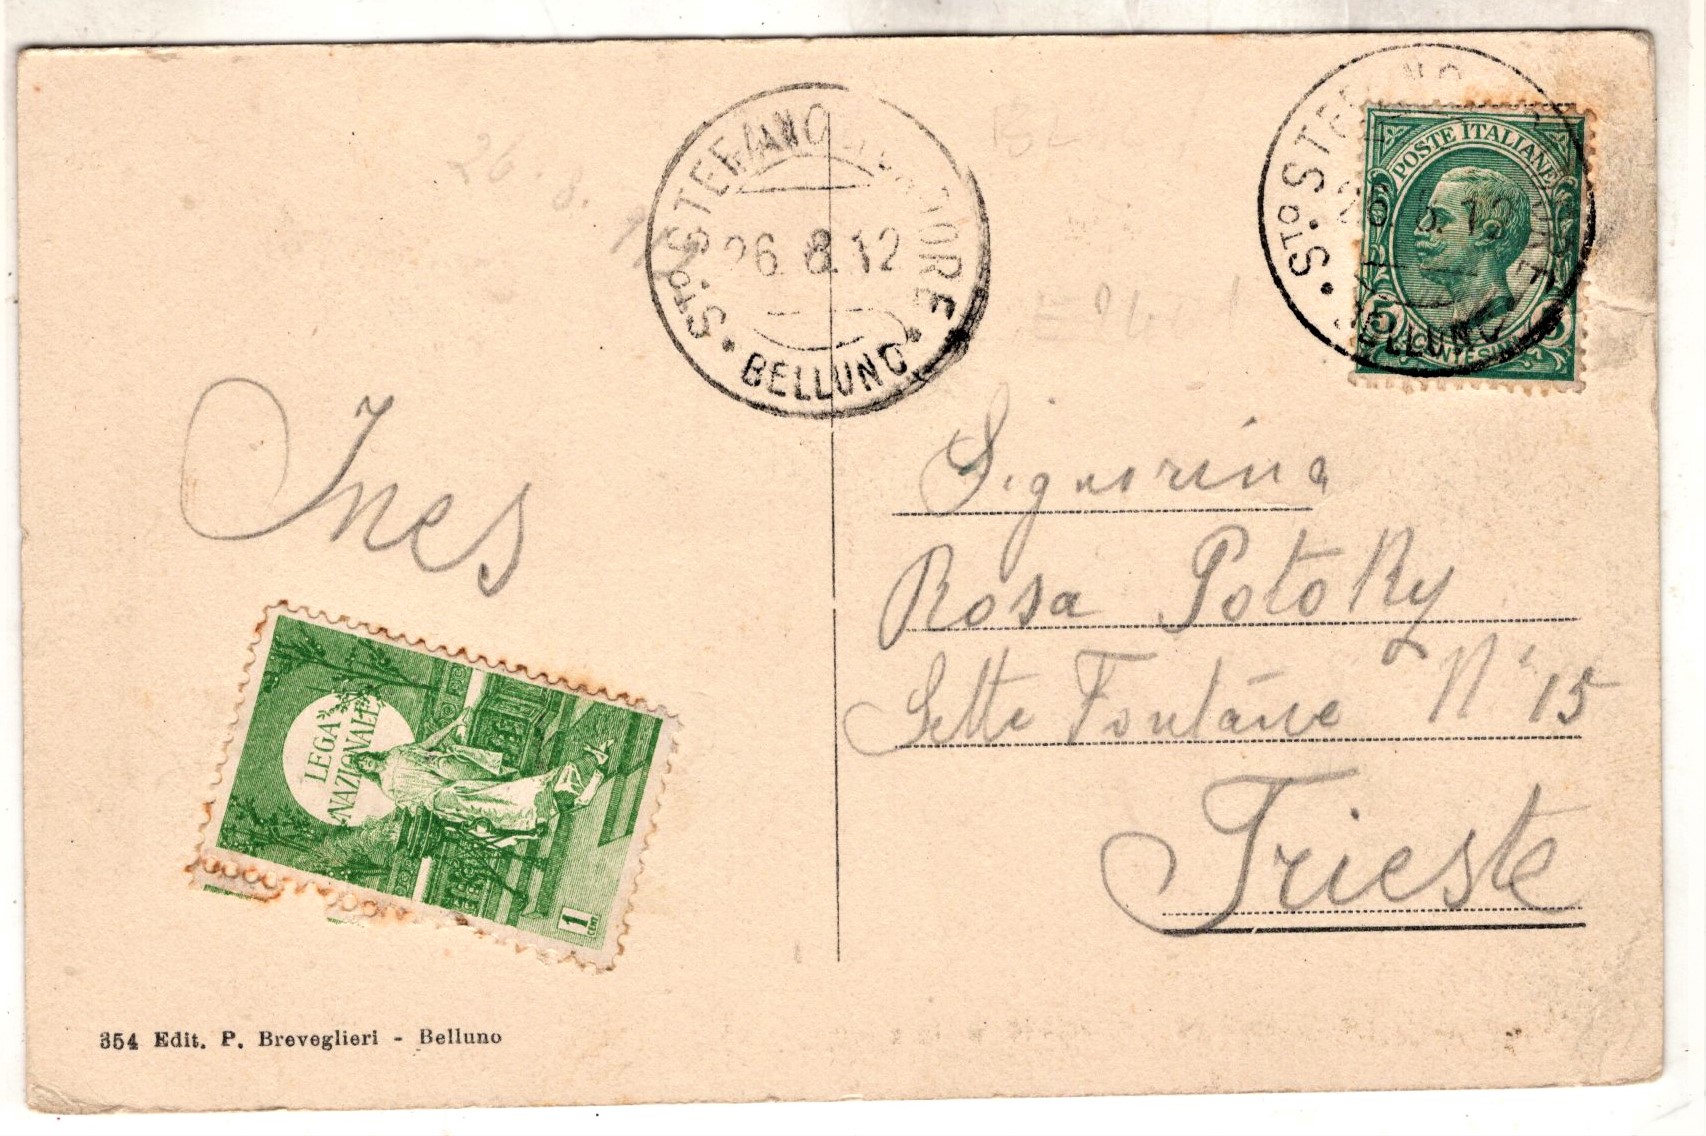 26.8.
STO. STEFANO
26.8.12
BELLUNO
STO. STEF
26.8.12
BELLUNO
POSTE ITALIANE
5 5
Ines
LEGA
NAZIONALE
1
CENT
Signorina
Rosa Potoky
Sette Fontane N° 15
Trieste
354 Edit. P. Breveglieri - Belluno